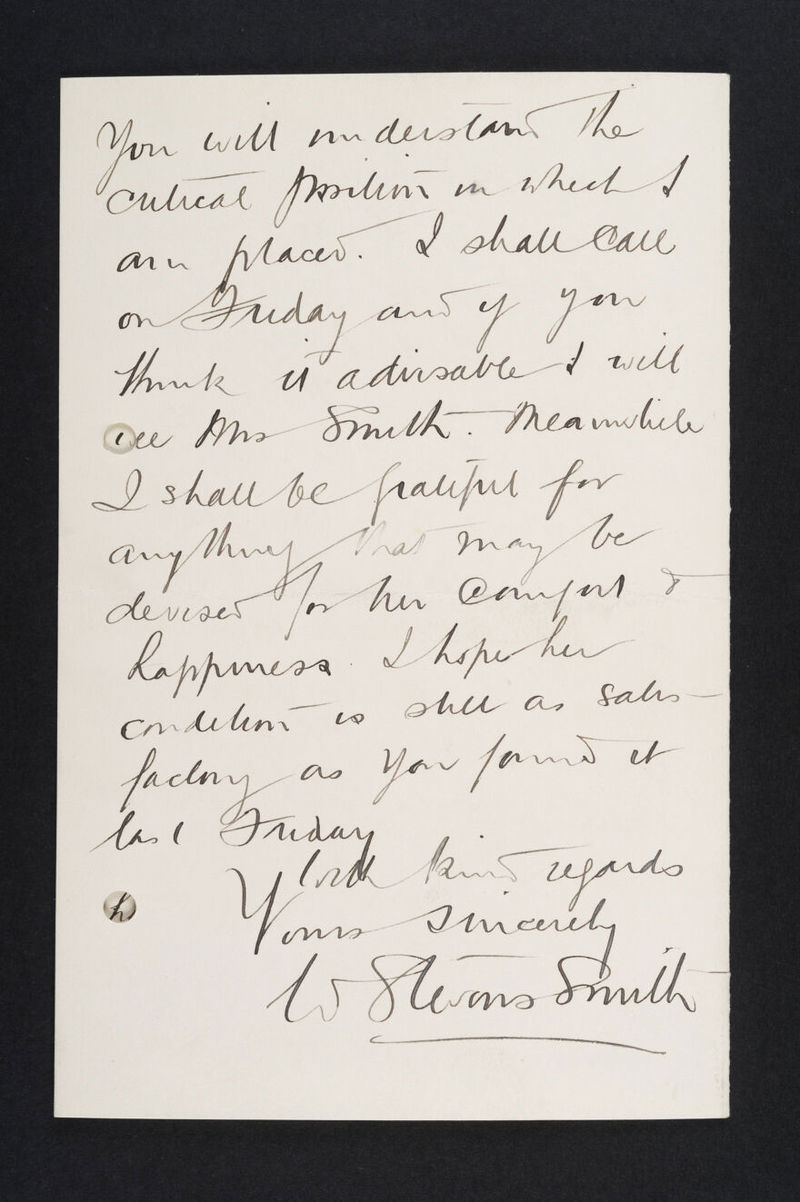 You will understand the
critical position in which I
am placed. I shall call
on Friday and if you
think it advisable I will
see Mrs Smith. Meanwhile
I shall be grateful for
anything that may be
devised for her comfort &
happiness. I hope her
condition is still as satis-
factory as you found it
last Friday
With kind regards
Yours sincerely
W Stevons Smith